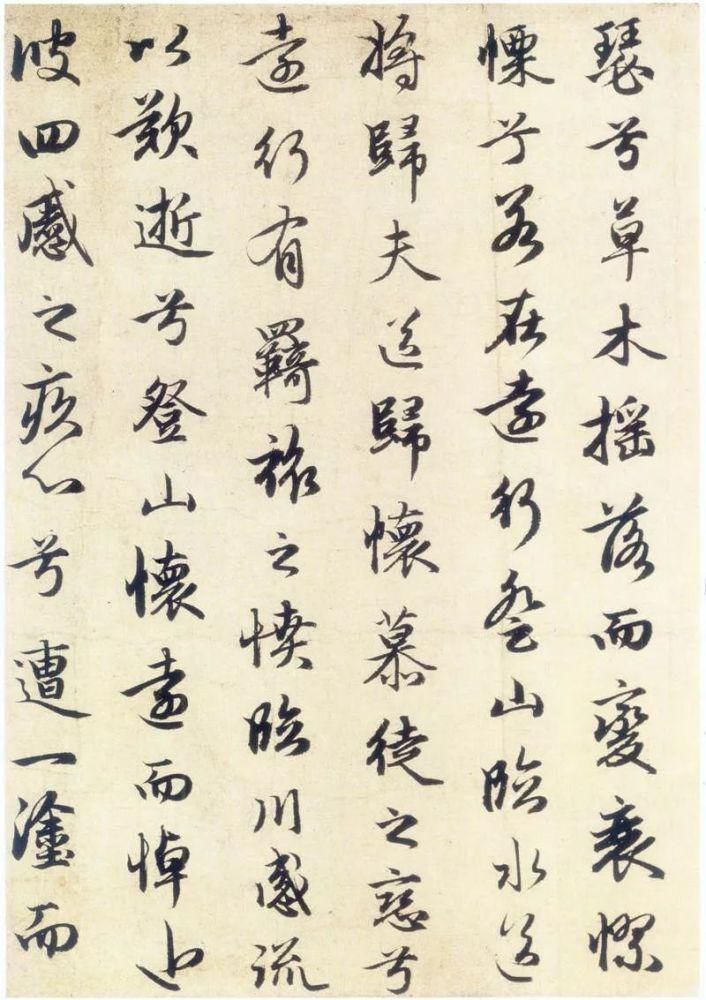 瑟兮草木摇落而變衰憀
慄兮若在遠行登山臨水送
將歸夫送歸懷慕徒之戀兮
遠行有羈旅之憤臨川感流
以歎逝兮登山懷遠而悼近
彼四慼之疚心兮遭一塗而